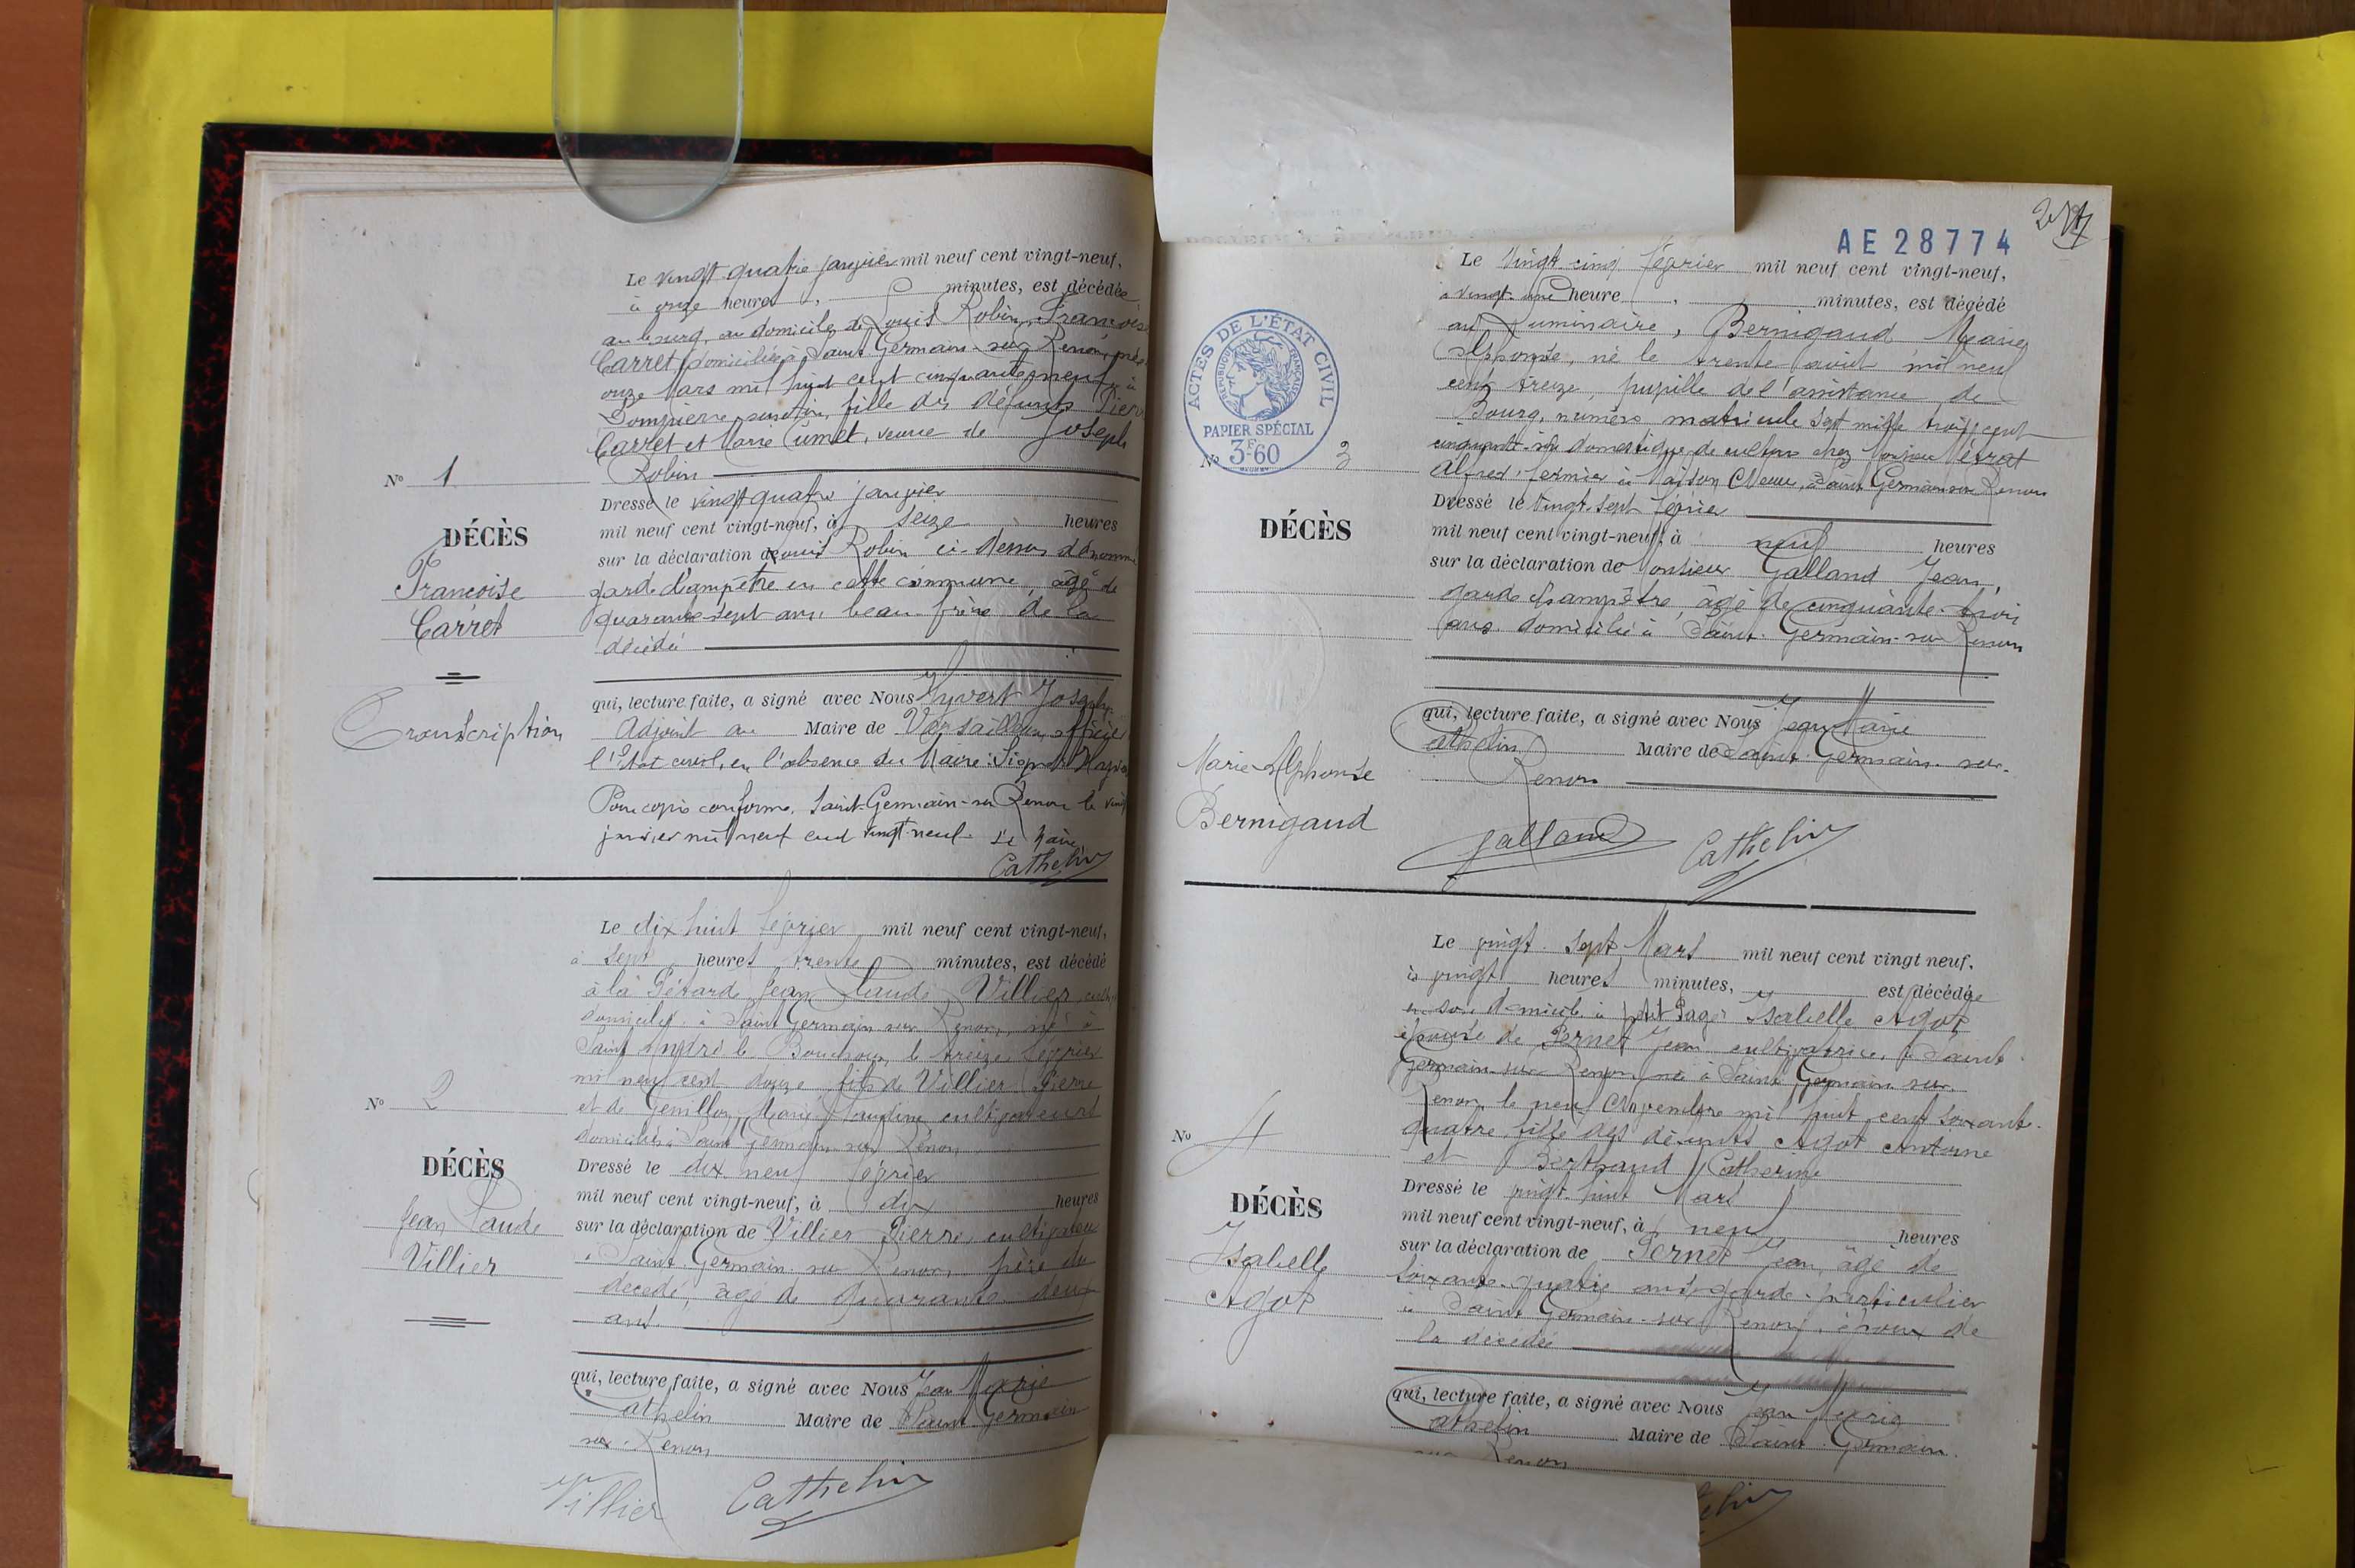 Le vingt quatre janvier mil neuf cent vingt-neuf,
à onze heures, minutes, est décédée
au bourg, au domicile de Louis Robin, Françoise
Carret, domiciliée à Saint Germain-sur Renon, née
onze Mars mil huit cent cinquante neuf à
Dompierre fille des défunts Pierre
Carret et Marie veuve de Joseph
Robin
Nº 1
DÉCÈS
Françoise
Carret
Transcription
Dressé le vingt quatre janvier
mil neuf cent vingt-neuf, à seize heures
sur la déclaration de Louis Robin ci-dessus dénommé
garde champêtre en cette commune, âgé de
quarante-sept ans, beau-frère de la
décédée
qui, lecture faite, a signé avec Nous Hyvert Joseph
Adjoint au Maire de Versailleux officier
l'Etat civil, en l'absence du Maire: Signé: Hyvert
Pour copie conforme, Saint-Germain-sur Renon le vingt
janvier mil neuf cent vingt-neuf. Le Maire,
Cathelin
Le dix huit février mil neuf cent vingt-neuf,
à sept heures trente minutes, est décédé
à la Pétarde Jean Claude Villier
domicilié à Saint Germain sur Renon, né à
Saint André le Bouchoux, le treize février
mil neuf cent douze fils de Villier Pierre
et de Genillon Marie Claudine cultivateurs
domiciliés à Saint Germain sur Renon
Nº 2
DÉCÈS
Jean Claude
Villier
Dressé le dix neuf février
mil neuf cent vingt-neuf, à dix heures
sur la déclaration de Villier Pierre, cultivateur
à Saint Germain sur Renon, père du
décédé, âgé de quarante deux
ans.
qui, lecture faite, a signé avec Nous Jean Marie
Cathelin Maire de Saint Germain
sur Renon
Villier Cathelin
AE 28774
Le vingt cinq février mil neuf cent vingt-neuf,
à vingt une heure, minutes, est décédé
au Luminaire, Bernigaud Marie
Alphonse, né le trente août mil neuf
cent treize, pupille de l'assistance de
Bourg, numéro matricule sept mille trois cent
cinquante domestique de culture chez Monsieur
Alfred fermier à Maison Neuve, Saint Germain sur Renon
ACTES DE L'ÉTAT CIVIL
RÉPUBLIQUE FRANÇAISE
PAPIER SPÉCIAL
3F60
Nº 3
DÉCÈS
Marie-Alphonse
Bernigaud
Dressé le vingt-sept février
mil neuf cent vingt-neuf, à neuf heures
sur la déclaration de Monsieur Galland Jean,
garde champêtre, âgé de cinquante-trois
ans domicilié à Saint-Germain-sur Renon
qui, lecture faite, a signé avec Nous Jean Marie
Cathelin Maire de Saint-Germain-sur-
Renon
Galland Cathelin
Le vingt-sept Mars mil neuf cent vingt neuf,
à vingt heures minutes, est décédée
en son domicile à petit Isabelle Agot
épouse de Pernet Jean cultivatrice à Saint
Germain-sur Renon née à Saint Germain sur
Renon le neuf Novembre mil huit cent soixante-
quatre, fille des défunts Agot Antoine
et Berthaud Catherine
Nº 4
DÉCÈS
Isabelle
Agot
Dressé le vingt-huit Mars
mil neuf cent vingt-neuf, à neuf heures
sur la déclaration de Pernet Jean, âgé de
soixante-quatre ans, garde-particulier
à Saint Germain-sur Renon, époux de
la décédée
qui, lecture faite, a signé avec Nous Jean Marie
Cathelin Maire de Saint Germain
sur Renon